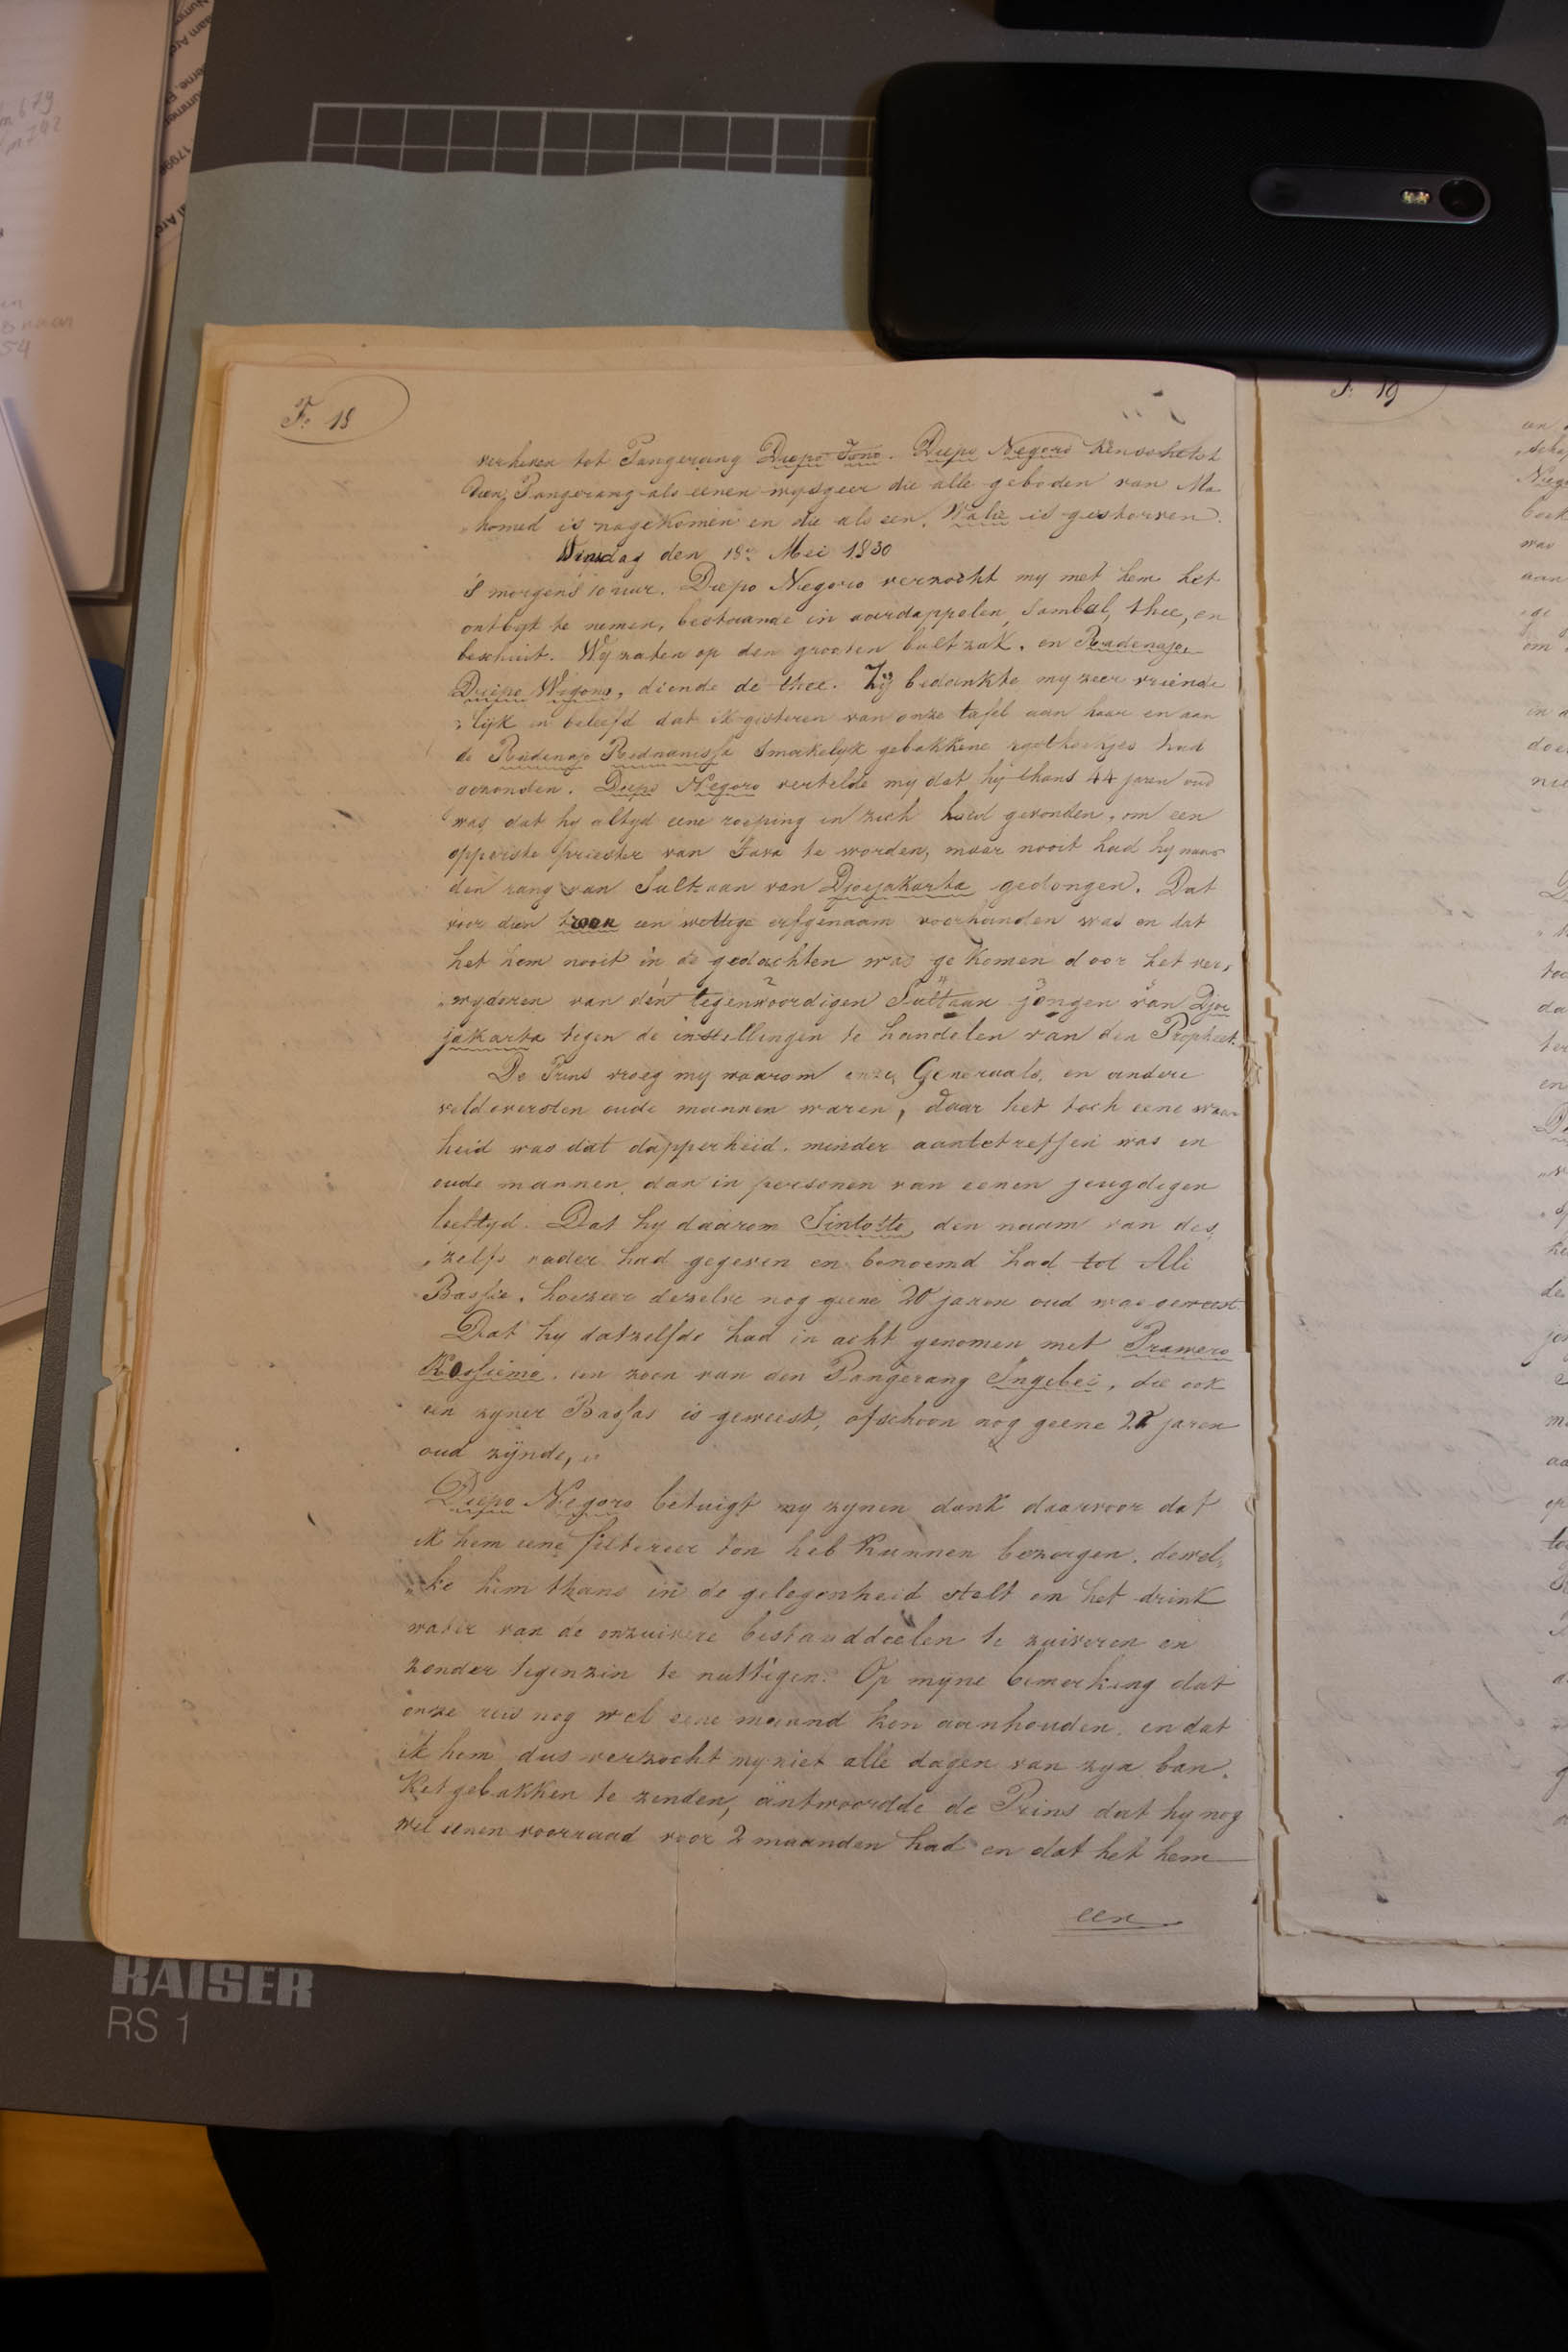 F. 18
verheven tot Pangerang Diepo Sono. Diepo Negoro kenschetst
dien Pangerang als eenen wysgeer die alle geboden van Ma
homed is nagekomen en die als een Walie is gestorven.
Dinsdag den 18n Mei 1830
's morgens 10 uur. Diepo Negoro verzocht my met hem het
ontbyt te nemen, bestaande in aardappelen, Sambal, thee, en
beschuit. Wy zaten op den grooten bultzak, en Radenajo
Diepo Wigono, diende de thee. Zy bedankte my zeer vriende
lijk en beleefd dat ik gisteren van onze tafel aan haar en aan
de Radenajo Rednanissa smakelyk gebakkene had
gezonden. Diepo Negoro vertelde my dat hy thans 44 jaren oud
was, dat hy altyd eene roeping in zich had gevonden, om een
opperste priester van Java te worden, maar nooit had hy naar
den rang van Sultaan van Djocjakarta gedongen. Dat
voor dien troon een wettige erfgenaam voorhanden was en dat
het hem nooit in de gedachten was gekomen door het ver,
wyderen van den tegenwoordigen Sultaan jongen van Djoc
jakarta tegen de instellingen te handelen van den Propheet.
De Prins vroeg my waarom onze Generaals, en andere
veldoversten oude mannen waren, daar het toch eene waar
heid was dat dapperheid, minder aantetreffen was in
oude mannen, dan in personen van eenen jeugdigen
leeftyd. Dat hy daarom Sintotte, den naam van des,
zelfs vader had gegeven en benoemd had tot Ali
Bassie, hoezeer dezelve nog geene 20 jaren oud was geweest.
Dat hy datzelfde had in acht genomen met Prawiro
Koesiemo, een zoon van den Pangerang Ingebei, die ook
een zyner Bassas is geweest, ofschoon nog geene jaren
oud zynde,
Diepo Negoro betuigt my zynen dank daarvoor dat
ik hem eene filtreer ton heb kunnen bezorgen, dewel,
ke hem thans in de gelegenheid stelt om het drink
water van de onzuivere bestanddeelen te zuiveren en
zonder tegenzin te nuttigen. Op myne bemerking dat
onze reis nog wel eene maand kon aanhouden, en dat
ik hem dus verzocht my niet alle dagen van zyn ban,
ket gebakken te zenden, antwoordde de Prins dat hy nog
wel eenen voorraad voor 2 maanden had en dat het hem
een
F. 19
KAISER
RS 1